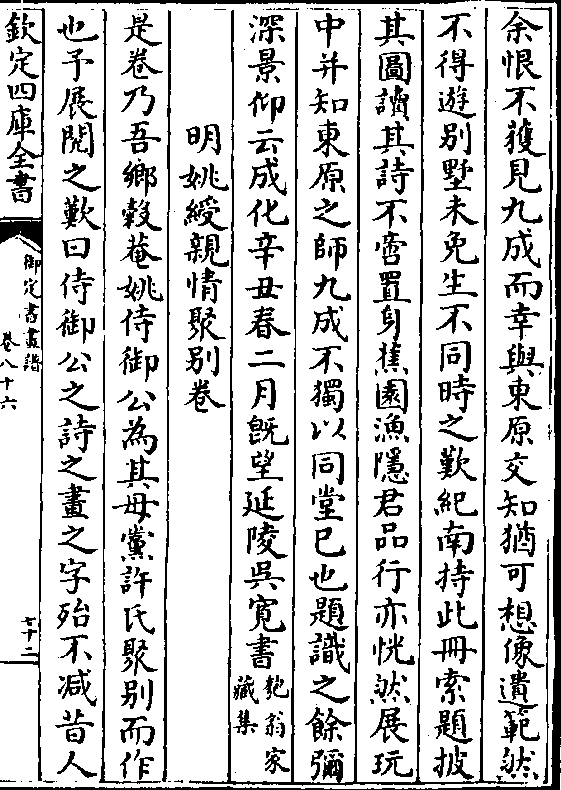 余恨不獲見九成而幸與東原交知猶可想像遺範然
不得遊别墅未免生不同時之歎紀南持此冊索題披
其圖讀其詩不啻置身蕉園漁隱君品行亦恍然展玩
中并知東原之師九成不獨以同堂已也題識之餘彌
深景仰云成化辛丑春二月旣望延陵吳寛書匏翁家藏集
明姚綬親情聚别卷
是卷乃吾鄉榖菴姚侍御公為其母黨許氏聚别而作
也予展閱之歎曰侍御公之詩之畫之字殆不减昔人
欽定四庫全書
御定書畫譜
卷八十六
七十二